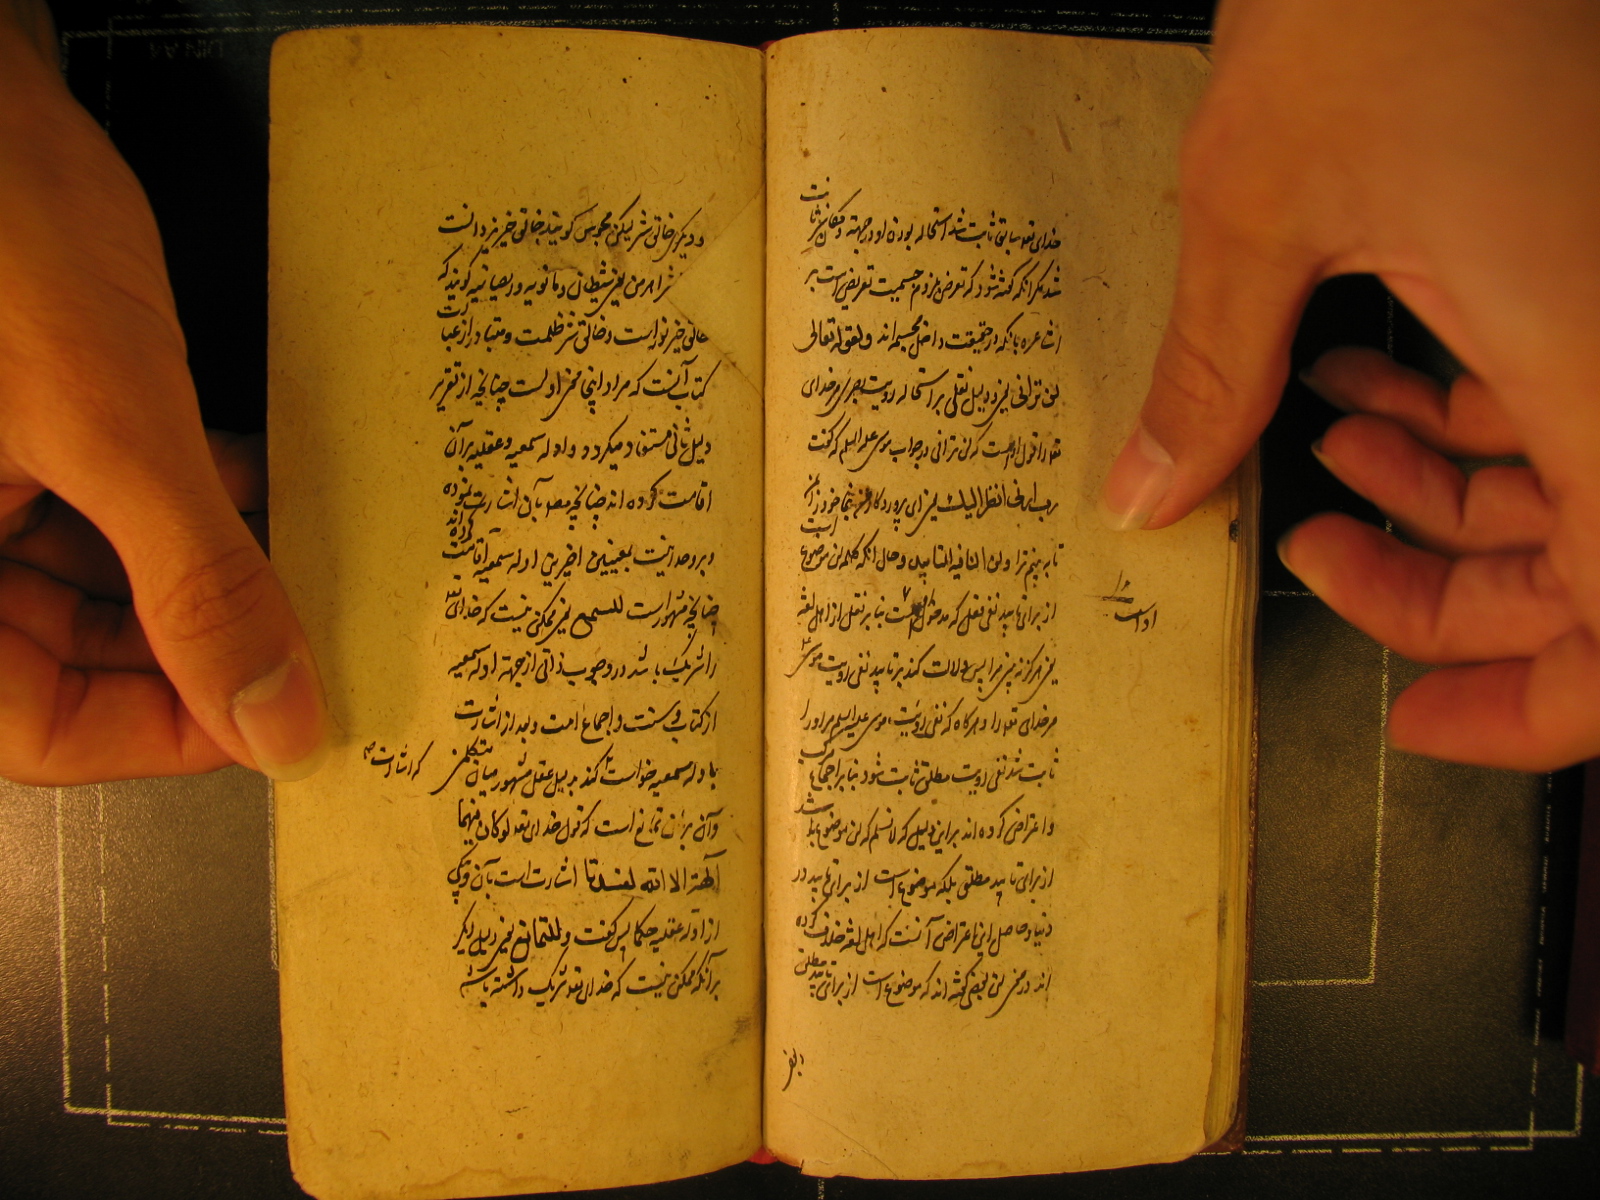 خدای تعه سابق ثابت شد استحاله بودن او در جهة و مکان نیز ثابت
شد مکر انکه کفته شود که تعرض بلزوم جسمیت تعریض است بر
اشاعره بانکه در حقیقت داخل مجسمه اند ولقوله تعالی
لن ترانی یعنی و دلیل نقلی بر استحاله رویت بصری مر خدای
تعه را قول اوست که لن ترانی در جواب موسی علیه السلم که کفت
رب ارنی انظر الیک یعنی ای پروردکار من بنما خود را بمن
تا به بینم ترا ولن النافیة للتابید و حال انکه کلمه لن موضوع است
از برای تابید نفی فعل که مدخول است بنا بر نقل از اهل لغة
یعنی هرکز نه بینی مرا پس دلالت کند بر تابید نفی رویت موسی
مر خدای تعه را و هرکاه که نفی رویت موسی علیه السلم مر او را
ثابت شد نفی رویت مطلق ثابت شود بنا بر اجماع مرکب
و اعتراض کرده اند براین دلیل که لا نسلم که لن موضوع باشد
از برای تابید مطلق بلکه موضوع است از برای تابید در
دنیا و حاصل این اعتراض آنست که اهل لغة خلاف کرده
اند در معنی لن بعضی کفته اند که موضوع است از برای تابید مطلق
و بعضی
او است
و دیکری خالق شر لیکن مجوس کویند خالق خیر یزدانست
شر اهرمن یعنی شیطان و مانویه و دیصانیه کویند که
خالق خیر نور است و خالق شر ظلمت و متبادر از عبارت
کتاب آنست که مراد اینجا معنی اولست چنانچه از تقریر
دلیل ثانی مستفاد میکردد و ادله سمعیه و عقلیه بر آن
اقامت کرده اند چنانچه مصه بآن اشارت نموده
و بر وحدانیت بمعنیین اخیرین ادله سمعیه اقامت کرده اند
چنانچه مشهور است للسمع یعنی ممکن نیست که خدای تعه
را شریک باشد در وجوب ذاتی از جهة ادله سمعیه
از کتاب و سنت و اجماع امت و بعد از اشارت
بادله سمعیه خواست که اشارت کند بدلیل عقل مشهور میان متکلمین
وآن برهان تمانع است که قول خدای تعه لو کان فیهما
آلهة الا الله لفسدتا اشارت است بآن و یکی
از ادله عقلیه حکما پس کفت و للتمانع یعنی دلیل دیکر
برآنکه ممکن نیست که خدای تعه شریک داشته باشد